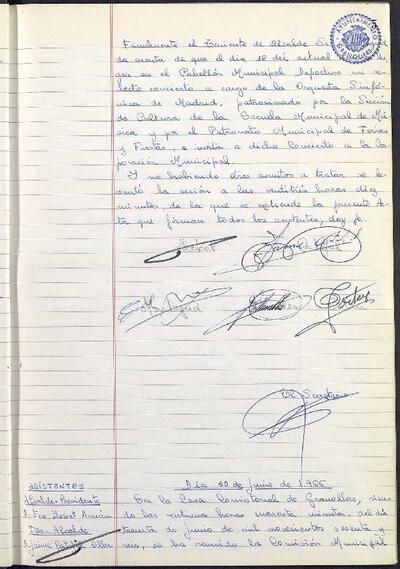 Finalmente el Teniente de Alcalde
da cuenta de que el dia 12 del actual
en el Pabellón Municipal Deportivo un se-
lecto concierto a cargo de la Orquesta Sinfó-
nica de Madrid, patrocinado por la Sección
de Cultura de la Escuela Municipal de Mú-
sica y por el Patronato Municipal de Ferias
y Fiestas, e invita a dicho Concierto a la Cor-
poración Municipal.
Y no habiendo otros asuntos a tratar se le-
vantó la sesión a las veintitrés horas diez
minutos de la que se extiende la presente Ac-
ta que firman todos los asistentes, doy fe.
El Secretario
ASISTENTES
Dia 30 de Junio de 1966
Alcalde-Presidente
En la Casa Consistorial de Granollers, sien-
do las veintiuna horas cuarenta minutos, del dia
Tte. Alcalde
treinta de junio de mil novecientos sesenta y
seis, se ha reunido la Comisión Municipal